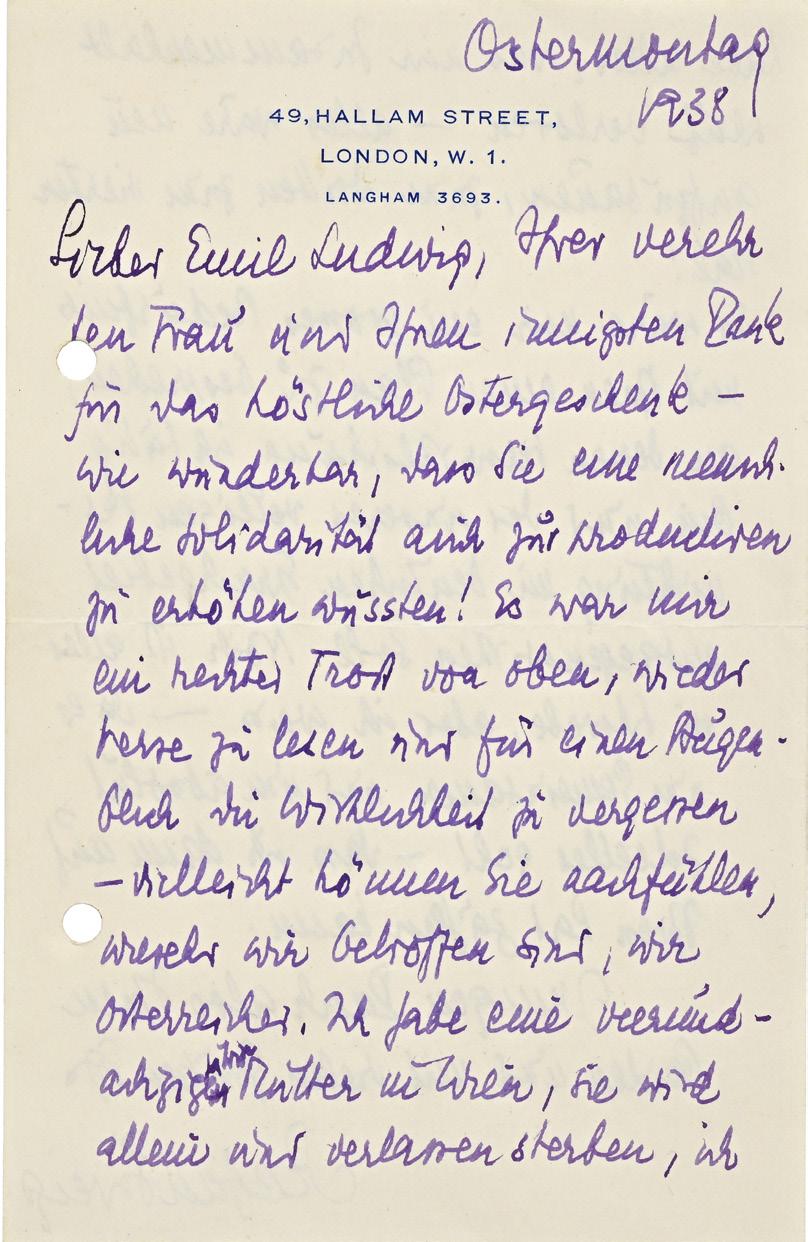 Ostermontag
1938
49, HALLAM STREET,
LONDON, W. 1.
LANGHAM 3693.
Lieber Emil Ludwig, Ihrer verehr
ten Frau und Ihnen innigsten Dank
für das köstliche Ostergeschenk –
wie wunderbar, dass Sie eine mensch-
liche Solidarität auch zur productiven
zu erhöhen wussten! Es war mir
ein rechter Trost von oben, wieder
Verse zu lesen und für einen Augen-
blick die Wirklichkeit zu vergessen
– vielleicht können Sie nachfühlen,
wiesehr wir betroffen sind, wir
Österreicher. Ich habe eine vierund-
achzigjährige Mutter in Wien, sie wird
allein und verlassen sterben, ich